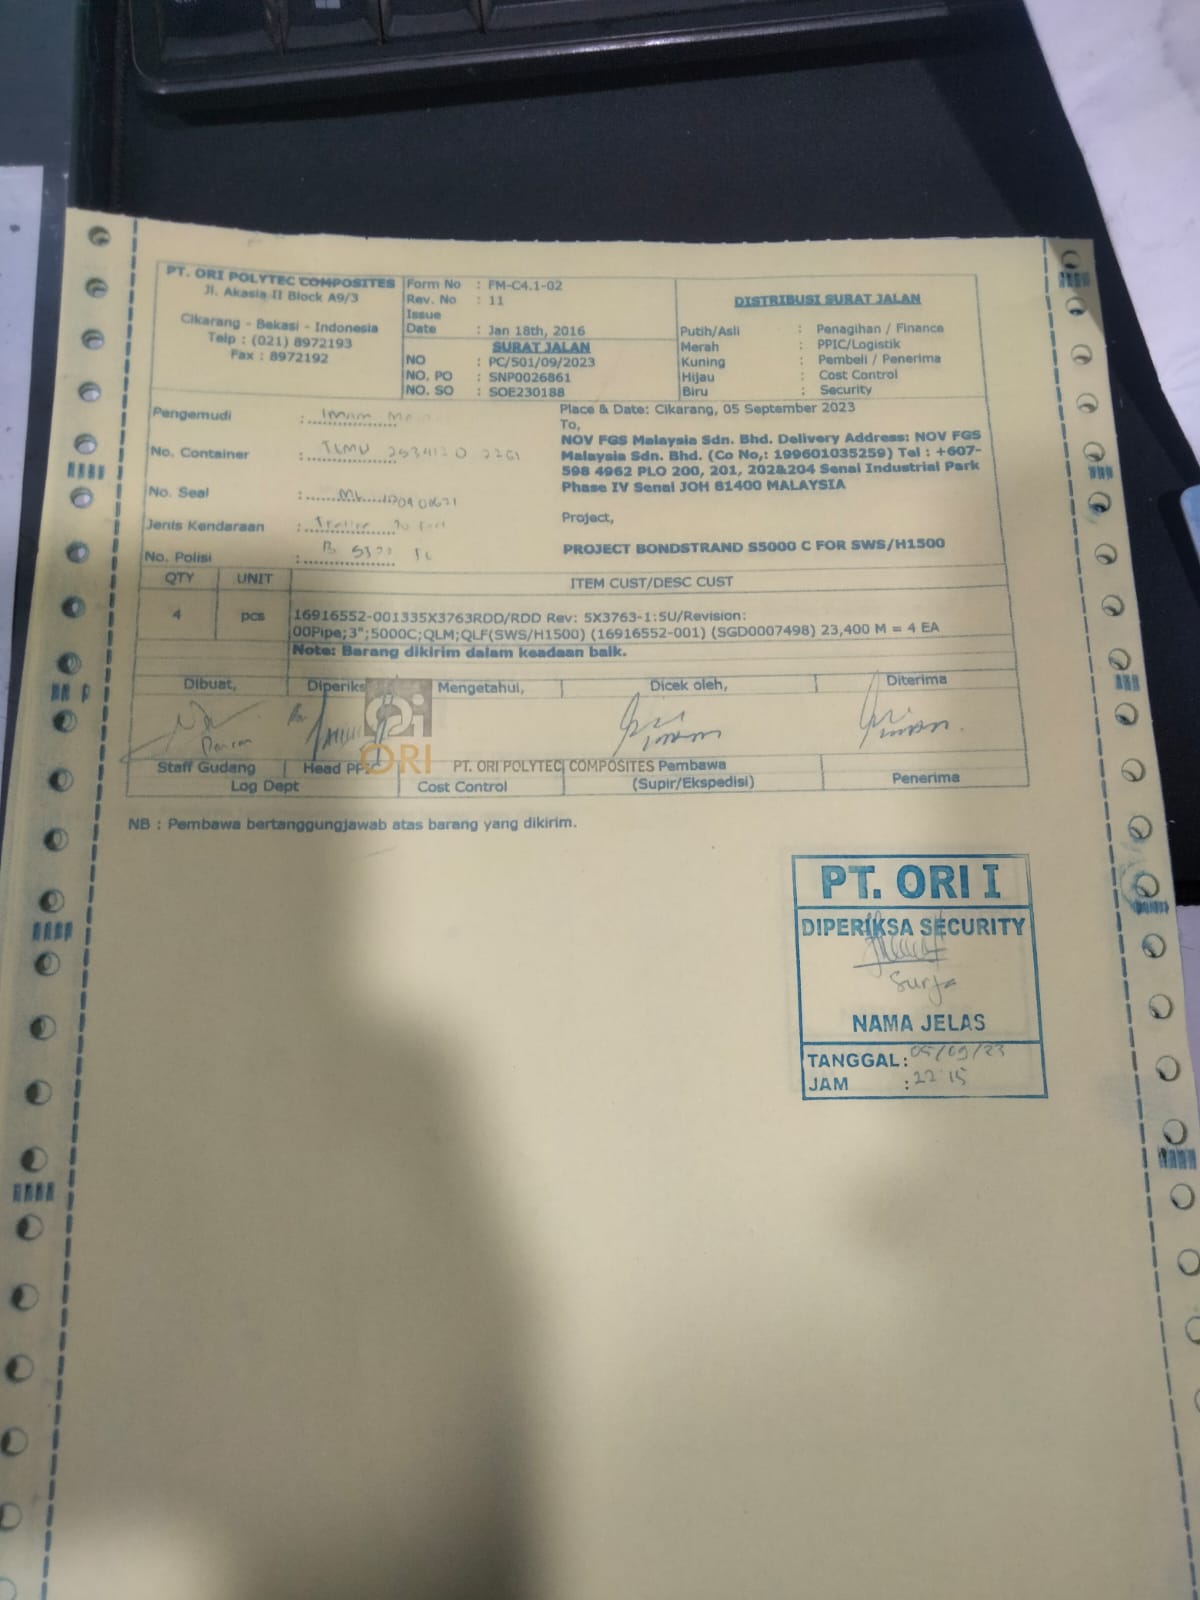 PT. ORI POLYTEC COMPOSITES
Jl. Akasia II Block A9/3
Cikarang - Bekasi - Indonesia
Telp : (021) 8972193
Fax : 8972192
Form No : FM-C4.1-02
Rev. No : 11
Issue
Date : Jan 18th, 2016
SURAT JALAN
NO : PC/501/09/2023
NO. PO : SNP0026861
NO. SO : SOE230188
DISTRIBUSI SURAT JALAN
Putih/Asli : Penagihan / Finance
Merah : PPIC/Logistik
Kuning : Pembeli / Penerima
Hijau : Cost Control
Biru : Security
Pengemudi : Imam
No. Container :
No. Seal :
Jenis Kendaraan :
No. Polisi : B
Place & Date: Cikarang, 05 September 2023
To,
NOV FGS Malaysia Sdn. Bhd. Delivery Address: NOV FGS
Malaysia Sdn. Bhd. (Co No,: 199601035259) Tel : +607-
598 4962 PLO 200, 201, 202&204 Senai Industrial Park
Phase IV Senai JOH 81400 MALAYSIA
Project,
PROJECT BONDSTRAND S5000 C FOR SWS/H1500
QTY UNIT ITEM CUST/DESC CUST
4 pcs 16916552-001335X3763RDD/RDD Rev: 5X3763-1:5U/Revision:
00Pipe;3";5000C;QLM;QLF(SWS/H1500) (16916552-001) (SGD0007498) 23,400 M = 4 EA
Note: Barang dikirim dalam keadaan baik.
Dibuat, Diperiks Mengetahui, Dicek oleh, Diterima
ORI PT. ORI POLYTEC COMPOSITES
Staff Gudang Head PP Pembawa
Log Dept Cost Control (Supir/Ekspedisi) Penerima
NB : Pembawa bertanggungjawab atas barang yang dikirim.
PT. ORI I
DIPERIKSA SECURITY
Surja
NAMA JELAS
TANGGAL: 05/09/23
JAM : 22 15